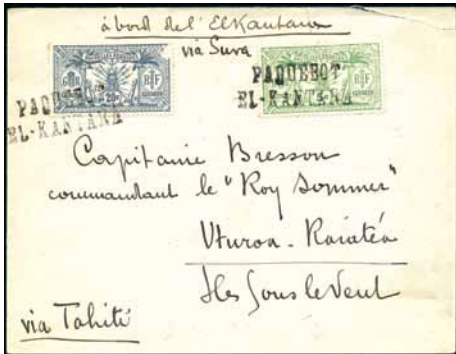 à bord de l'El Kantara
via Suva
PAQUEBOT
EL-KANTARA
PAQUEBOT
EL-KANTARA
RF
RF
Capitaine Bresson
commandant le "Roy Sommer"
Uturoa - Raiatéa
Iles Sous le Vent
via Tahiti